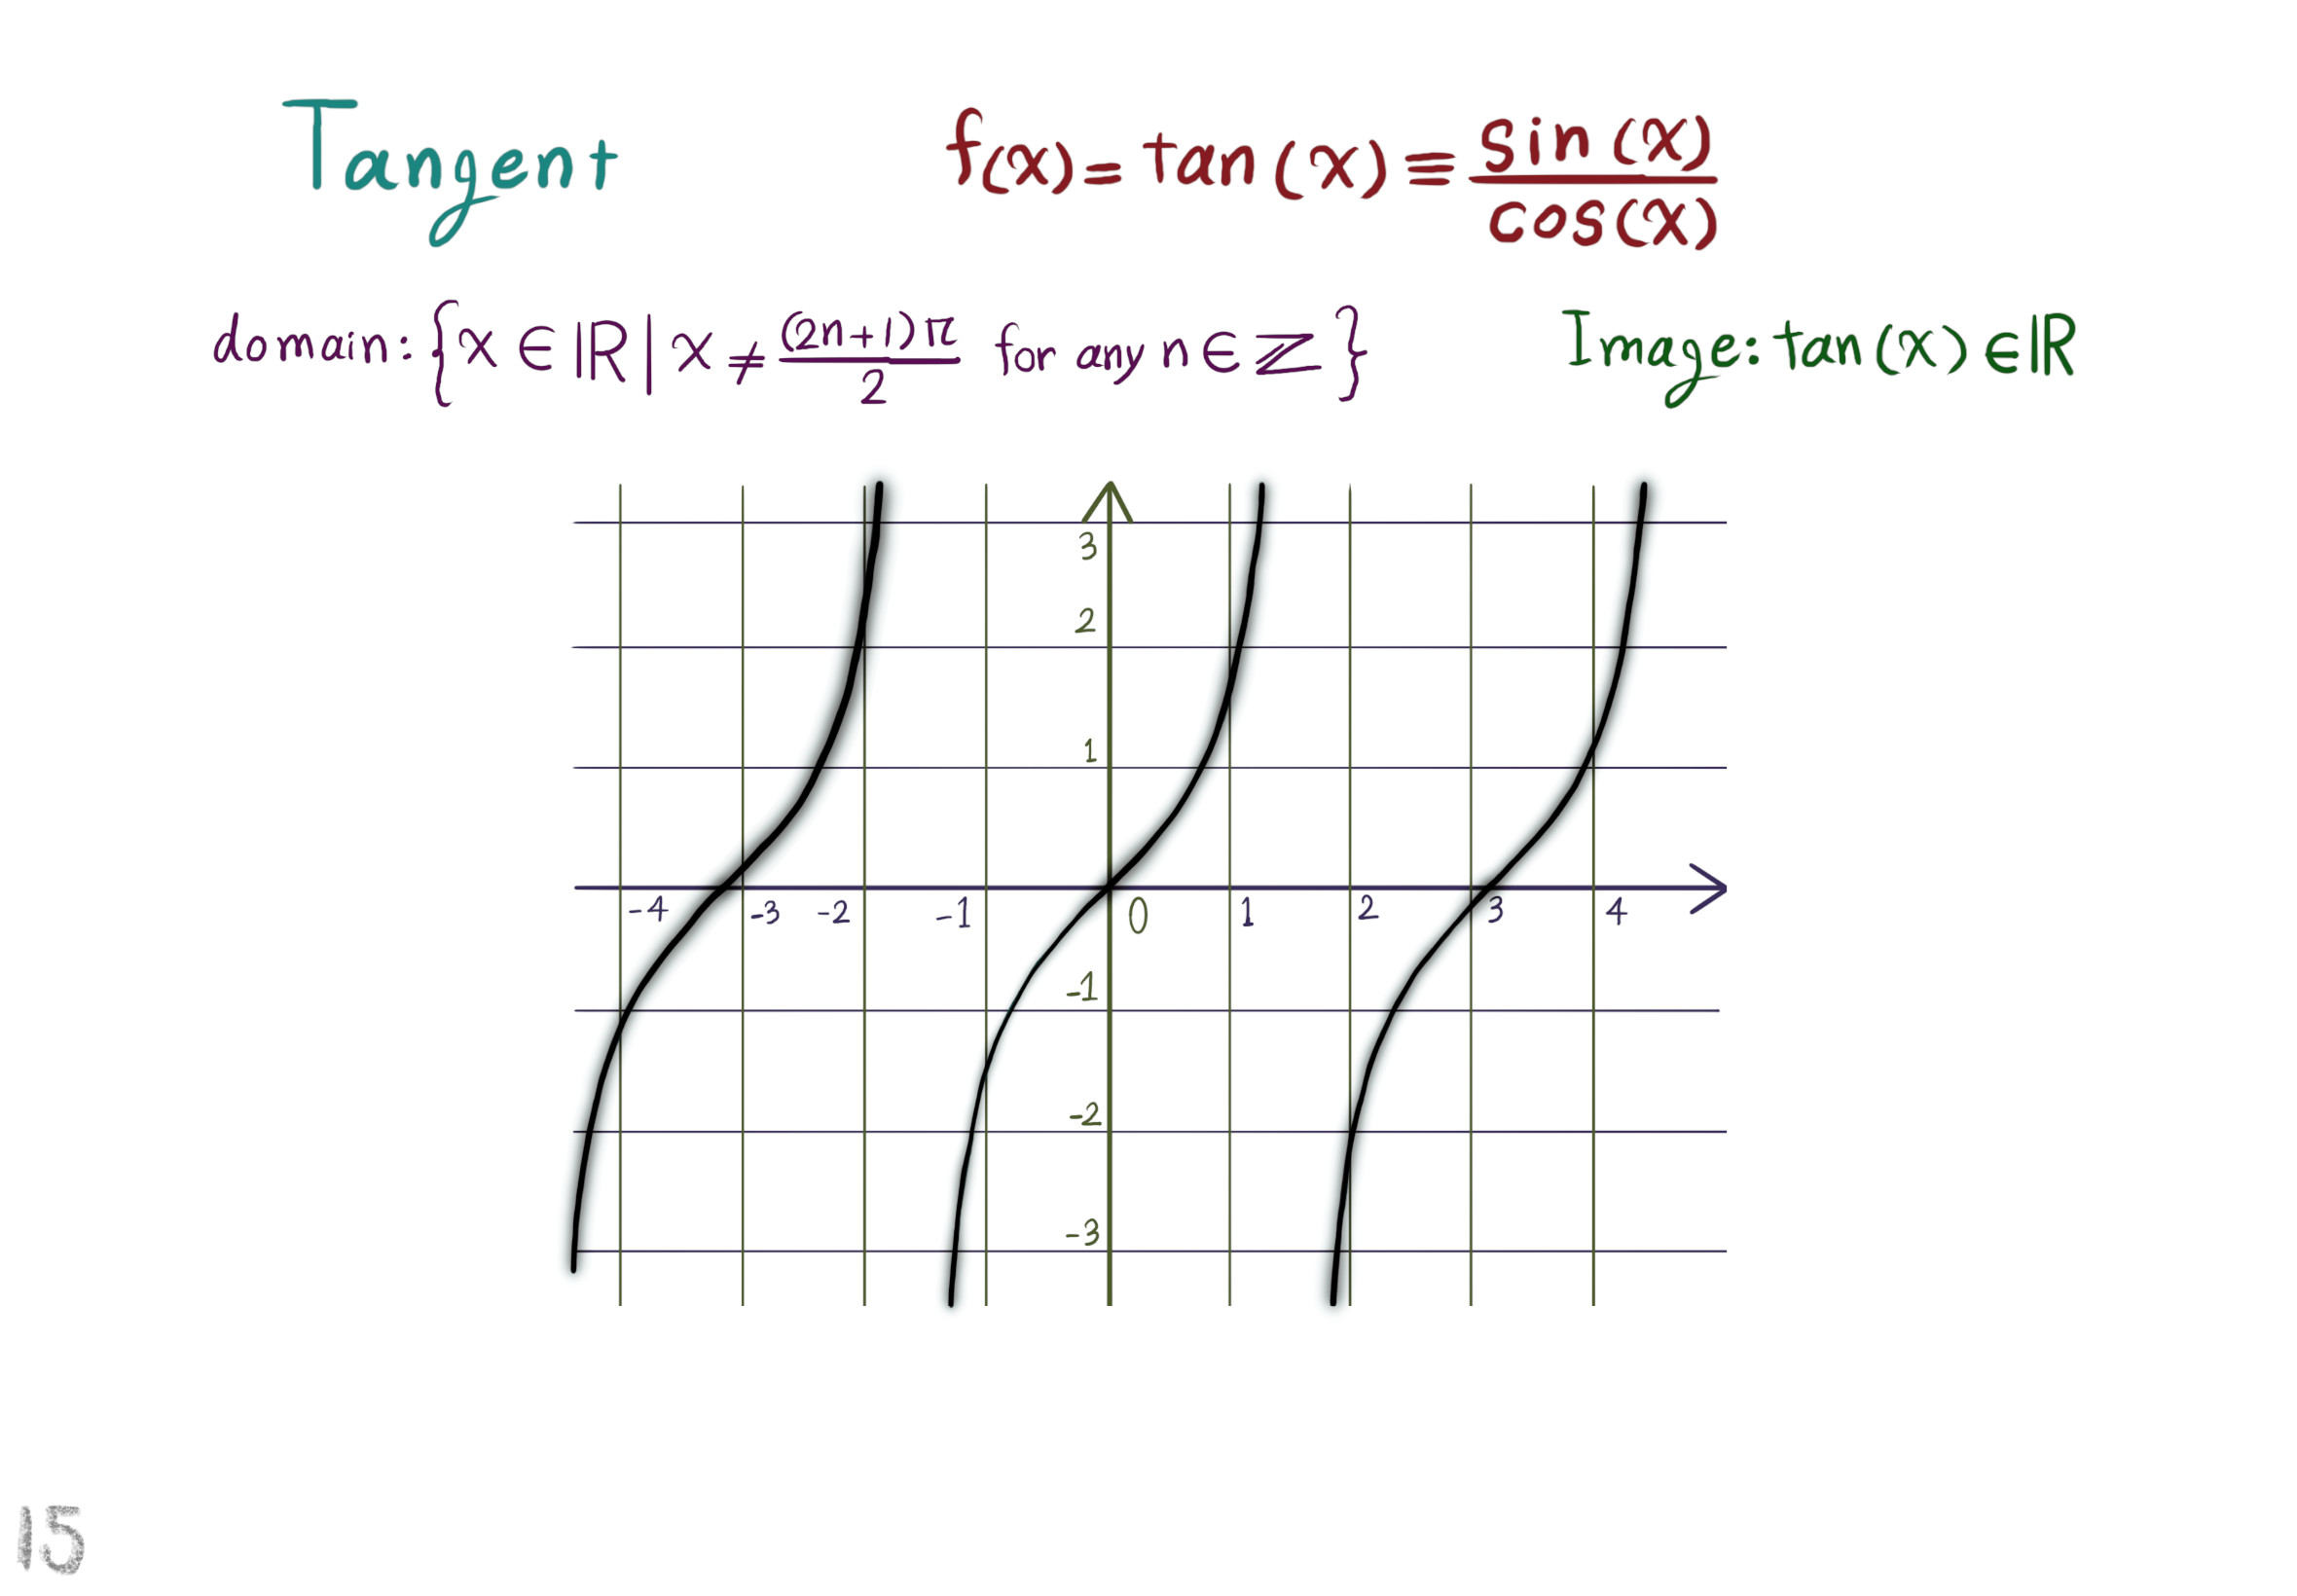 Tangent
f(x) = tan(x) ≡ sin(x)/cos(x)
domain: {x ∈ ℝ | x ≠ (2n+1)π/2 for any n ∈ ℤ}
Image: tan(x) ∈ ℝ
3
2
1
-4 -3 -2 -1 0 1 2 3 4
-1
-2
-3
15